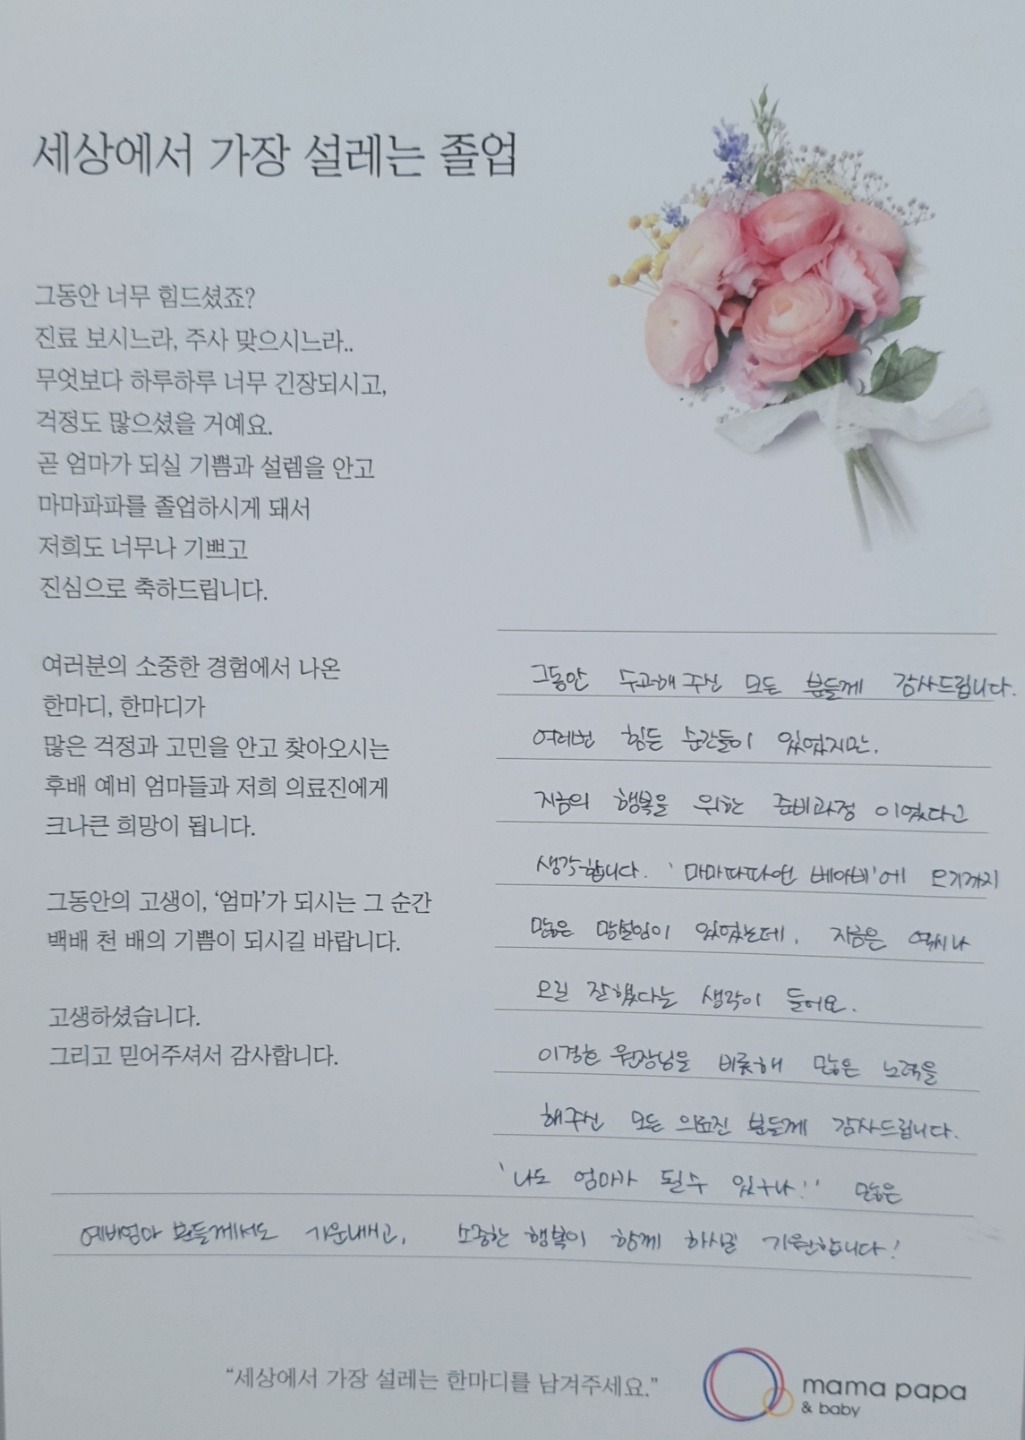 세상에서 가장 설레는 졸업
그동안 너무 힘드셨죠?
진료 보시느라, 주사 맞으시느라..
무엇보다 하루하루 너무 긴장되시고,
걱정도 많으셨을 거예요.
곧 엄마가 되실 기쁨과 설렘을 안고
마마파파를 졸업하시게 돼서
저희도 너무나 기쁘고
진심으로 축하드립니다.
여러분의 소중한 경험에서 나온
한마디, 한마디가
많은 걱정과 고민을 안고 찾아오시는
후배 예비 엄마들과 저희 의료진에게
크나큰 희망이 됩니다.
그동안의 고생이, ‘엄마’가 되시는 그 순간
백배 천 배의 기쁨이 되시길 바랍니다.
고생하셨습니다.
그리고 믿어주셔서 감사합니다.
그동안 수고해 주신 모든 분들께 감사드립니다.
여러번 힘든 순간들이 있었지만,
지금의 행복을 위한 준비과정 이였다고
생각합니다. '마마파파앤 베이비'에 오기까지
많은 망설임이 있었는데, 지금은 역시나
오길 잘했다는 생각이 들어요.
원장님을 비롯해 많은 노력을
해주신 모든 의료진 분들께 감사드립니다.
'나도 엄마가 될수 있구나!' 많은
예비엄마 분들께서도 기운내시고, 소중한 행복이 함께 하시길 기원합니다!
“세상에서 가장 설레는 한마디를 남겨주세요.”
mama papa
& baby